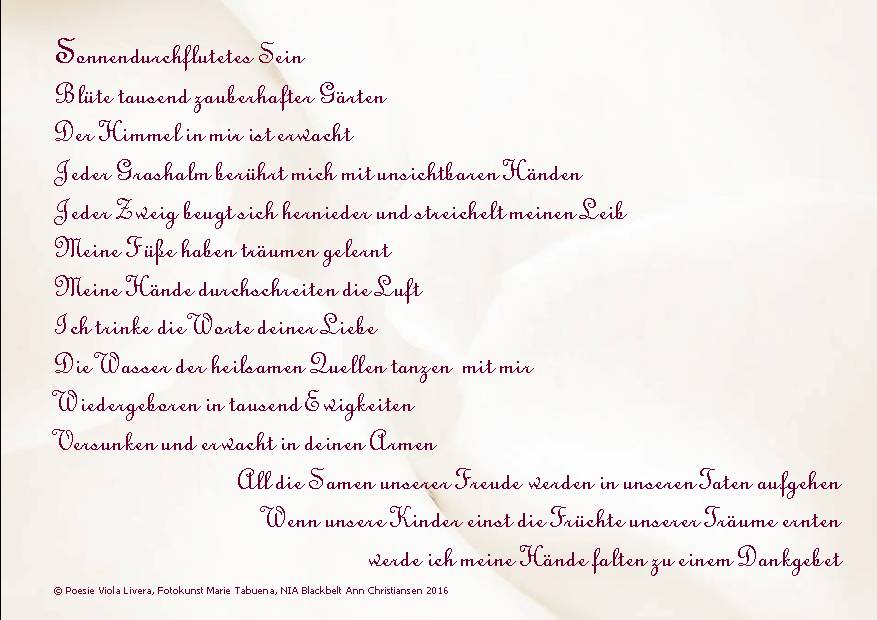 Sonnendurchflutetes Sein
Blüte tausend zauberhafter Gärten
Der Himmel in mir ist erwacht
Jeder Grashalm berührt mich mit unsichtbaren Händen
Jeder Zweig beugt sich hernieder und streichelt meinen Leib
Meine Füße haben träumen gelernt
Meine Hände durchschreiten die Luft
Ich trinke die Worte deiner Liebe
Die Wasser der heilsamen Quellen tanzen mit mir
Wiedergeboren in tausend Ewigkeiten
Versunken und erwacht in deinen Armen
All die Samen unserer Freude werden in unseren Taten aufgehen
Wenn unsere Kinder einst die Früchte unserer Träume ernten
werde ich meine Hände falten zu einem Dankgebet
© Poesie Viola Livera, Fotokunst Marie Tabuena, NIA Blackbelt Ann Christiansen 2016